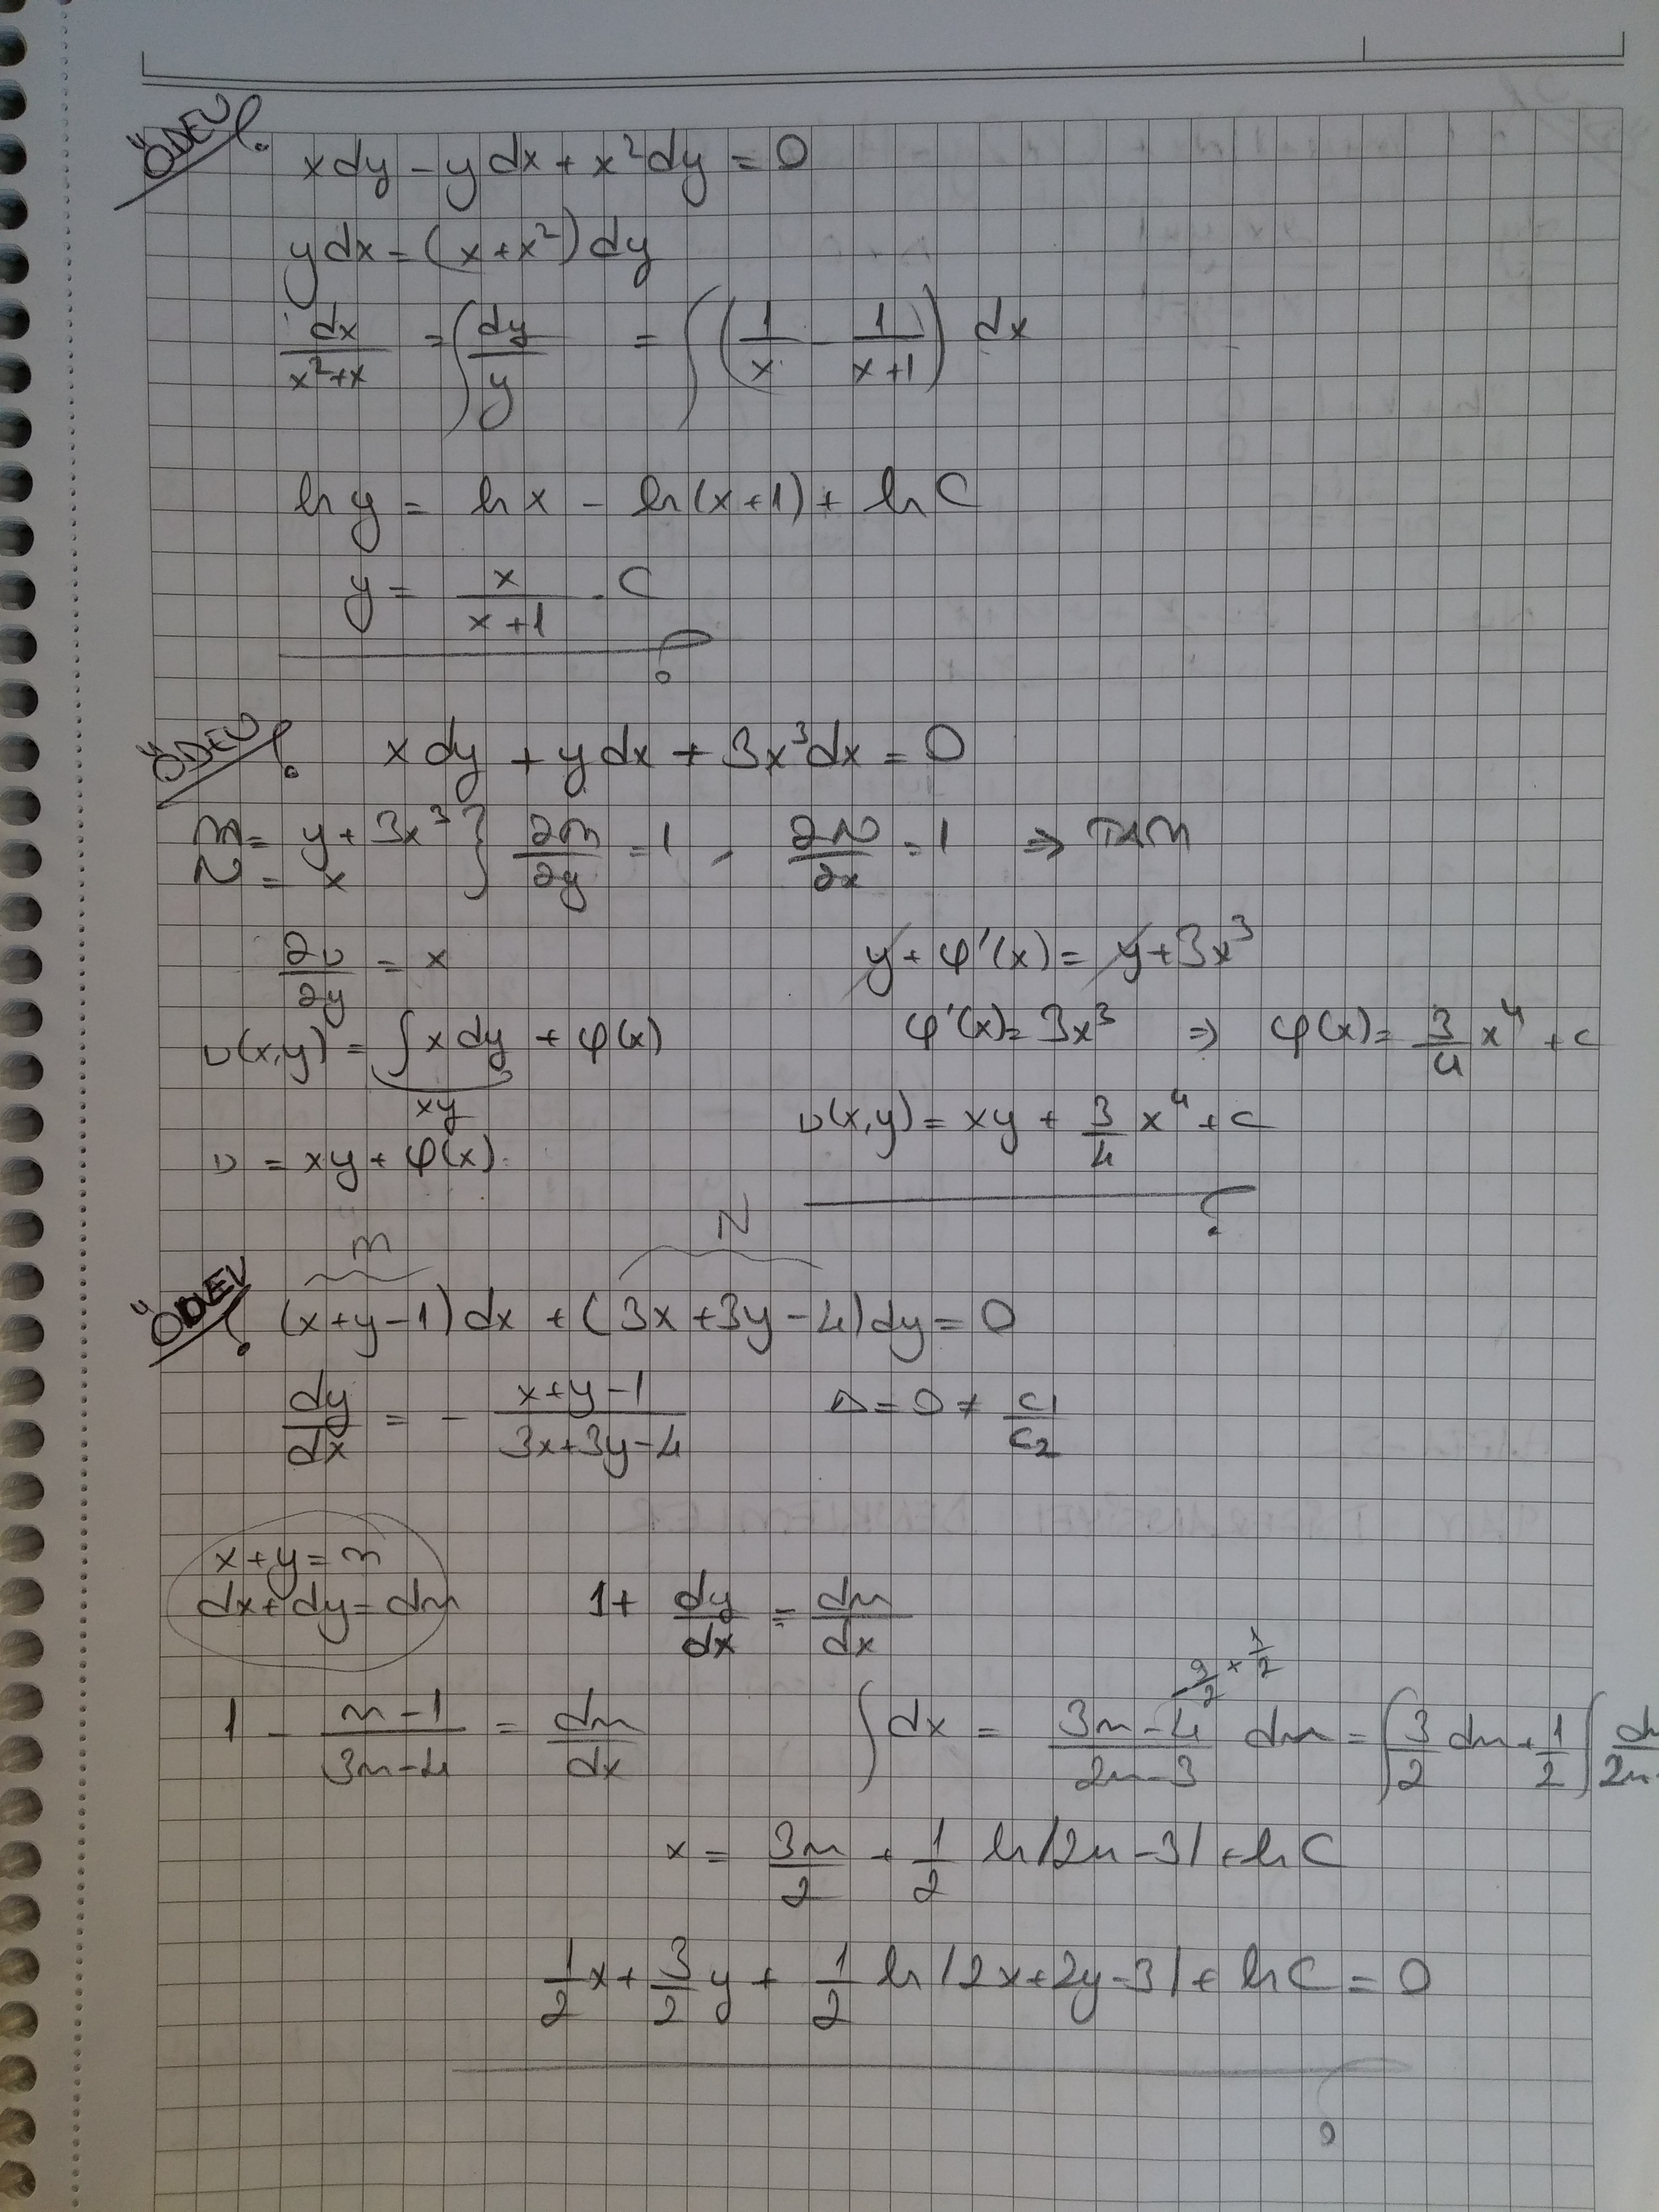 ÖDEV
x dy - y dx + x² dy = 0
y dx = (x + x²) dy
dx/(x²+x) = ∫ dy/y = ∫ (1/x - 1/(x+1)) dx
ln y = ln x - ln(x+1) + ln C
y = x/(x+1) . C
ÖDEV
x dy + y dx + 3x³ dx = 0
m = y + 3x³ } ∂m/∂y = 1 , ∂N/∂x = 1 ⇒ TAM
N = x
∂υ/∂y = x
υ(x,y) = ∫ x dy + φ(x)
xy
υ = xy + φ(x)
y + φ'(x) = y + 3x³
φ'(x) = 3x³ ⇒ φ(x) = 3/4 x⁴ + c
υ(x,y) = xy + 3/4 x⁴ + c
m N
ÖDEV
(x+y-1) dx + (3x+3y-4) dy = 0
dy/dx = - (x+y-1)/(3x+3y-4) Δ = 0 ≠ c₁/c₂
x + y = m
dx + dy = dm 1 + dy/dx = dm/dx
1 - (m-1)/(3m-4) = dm/dx
∫ dx = (3m-4)/(2m-3) dm = ∫ 3/2 dm + 1/2 ∫
x = 3m/2 + 1/2 ln|2m-3| + ln C
1/2 x + 3/2 y + 1/2 ln|2x+2y-3| + ln C = 0